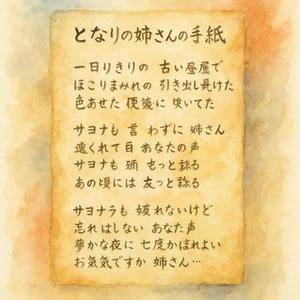 となりの姉さんの手紙
一日りきりの 古い昼屋で
ほこりまみれの 引き出し開けた
色あせた 便箋に 咲いてた
サヨナも 言わずに 姉さん
遠くれて白 あなたの声
サヨナも も っと 詠る
あの頃には 友っと 詠る
サヨナラも 疲れないけど
忘れはしない あなた声
夢かな夜に 七度かぼれよい
お気気ですか 姉さん…